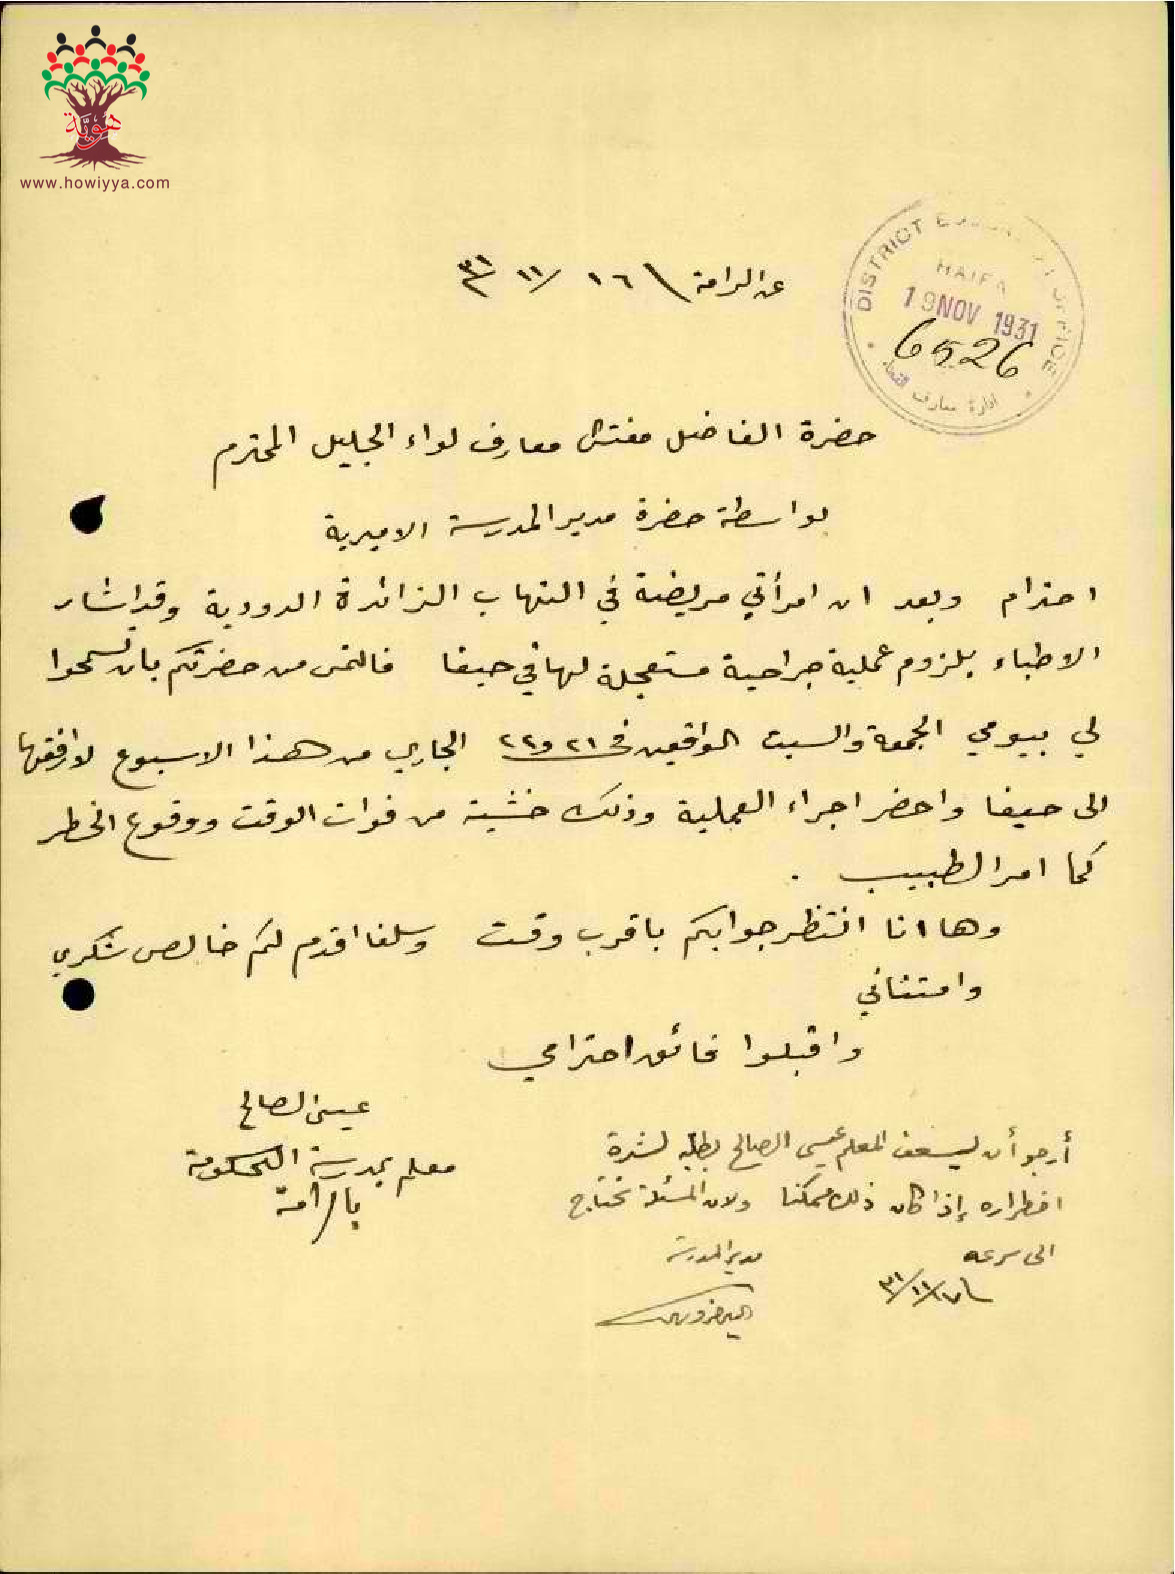 هوية
www.howiyya.com
DISTRICT EDUCATION OFFICE
HAIFA
19 NOV 1931
6526
ادارة معارف القضاء
عن الرامة ١٦ / ١١ / ٣١
حضرة الفاضل مفتش معارف لواء الجليل المحترم
بواسطة حضرة مدير المدرسة الاميرية
احترام وبعد ان امرأتي مريضة في التهاب الزائدة الدودية وقد اشار
الاطباء بلزوم عملية جراحية مستعجلة لها في حيفا فالتمس من حضرتكم بان تسمحوا
لي بيومي الجمعة والسبت الواقعين في ٢١ و ٢٢ الجاري من هذا الاسبوع لارافقها
الى حيفا واحضر اجراء العملية وذلك خشية من فوات الوقت ووقوع الخطر
كما امر الطبيب .
وها انا انتظر جوابكم باقرب وقت وسلفا اقدم لكم خالص شكري
وامتناني
واقبلوا فائق احترامي
عيسى الصالح
معلم بمدرسة الحكومة
بالرامة
أرجو أن يسعف المعلم عيسى الصالح بطلبه لشدة
اضطراره إذا كان ذلك ممكنا ولان المسئلة تحتاج
الى سرعه
مدير المدرسة
١٧/١١/٣١